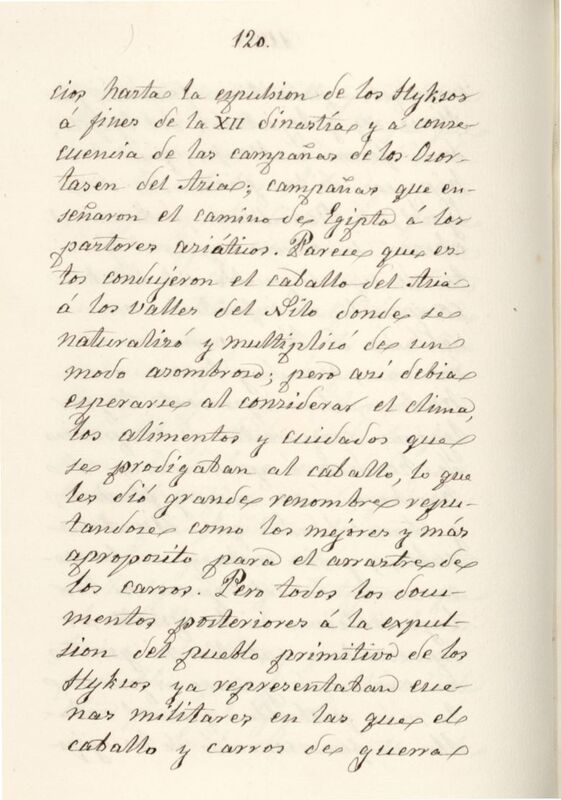 120.
cios hasta la expulsion de los Hyksos
á fines de la XII dinastía y a conse
cuencia de las campañas de los Osor-
tasen del Asia; campañas que en-
señaron el camino de Egipto á los
pastores asiáticos. Parece que es-
tos condujeron el caballo del Asia
á los valles del Nilo donde se
naturalizó y multiplicó de un
modo asombroso; pero así debia
esperarse al considerar el clima,
los alimentos y cuidados que
se prodigaban al caballo, lo que
les dió grande renombre repu-
tandose como los mejores y más
aproposito para el arrastre de
los carros. Pero todos los docu-
mentos posteriores á la expul-
sion del pueblo primitivo de los
Hyksos ya representaban esce-
nas militares en las que el
caballo y carros de guerra